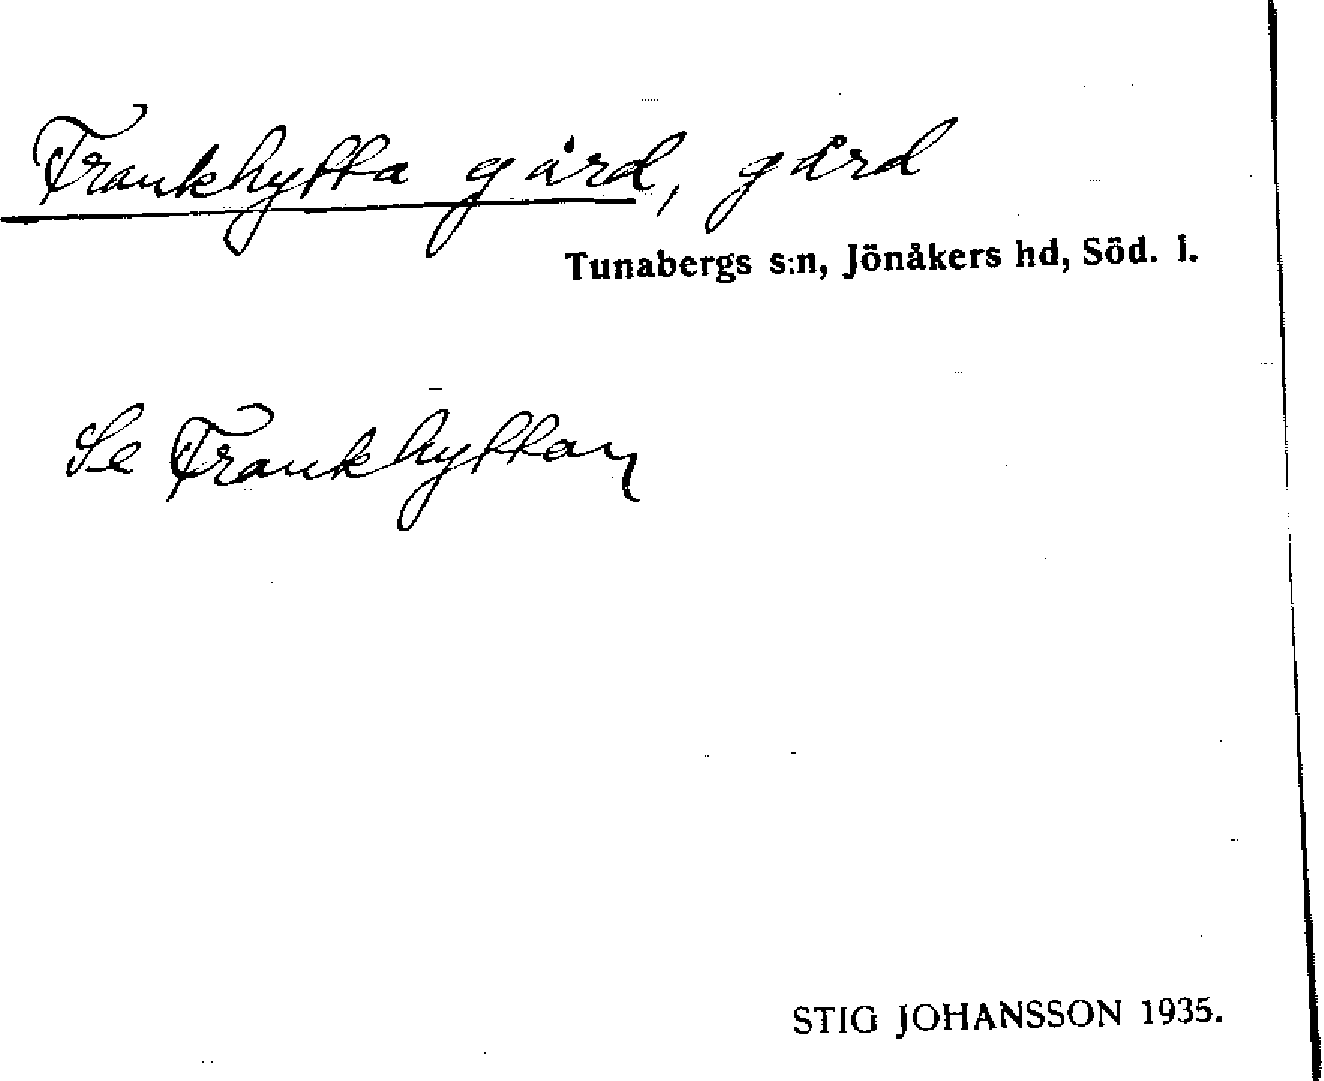 Frankhytta gård, gård
Tunabergs s:n, Jönåkers hd, Söd. l.
Se Frankhyttan
STIG JOHANSSON 1935.